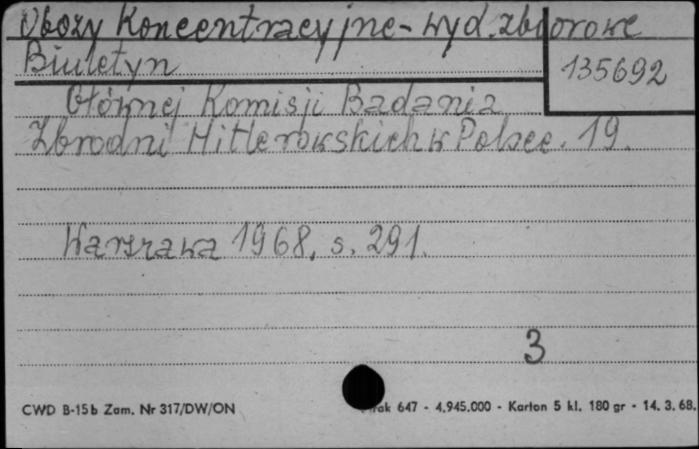 Obozy Koncentracyjne - wyd. zbiorowe
Biuletyn
135692
Głównej Komisji Badania
Zbrodni Hitlerowskich w Polsce. 19.
Warszawa 1968, s. 291.
3
CWD B-15b Zam. Nr 317/DW/ON
647 - 4.945.000 - Karton 5 kl. 180 gr - 14. 3. 68.